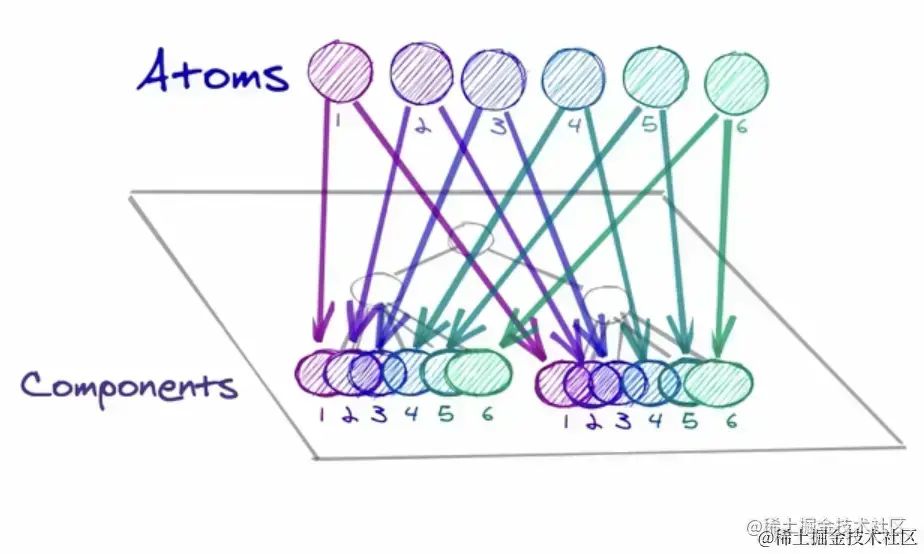 Atoms
1 2 3 4 5 6
Components
1 2 3 4 5 6 1 2 3 4 5 6
@稀土掘金技术社区
@稀土掘金技术社区